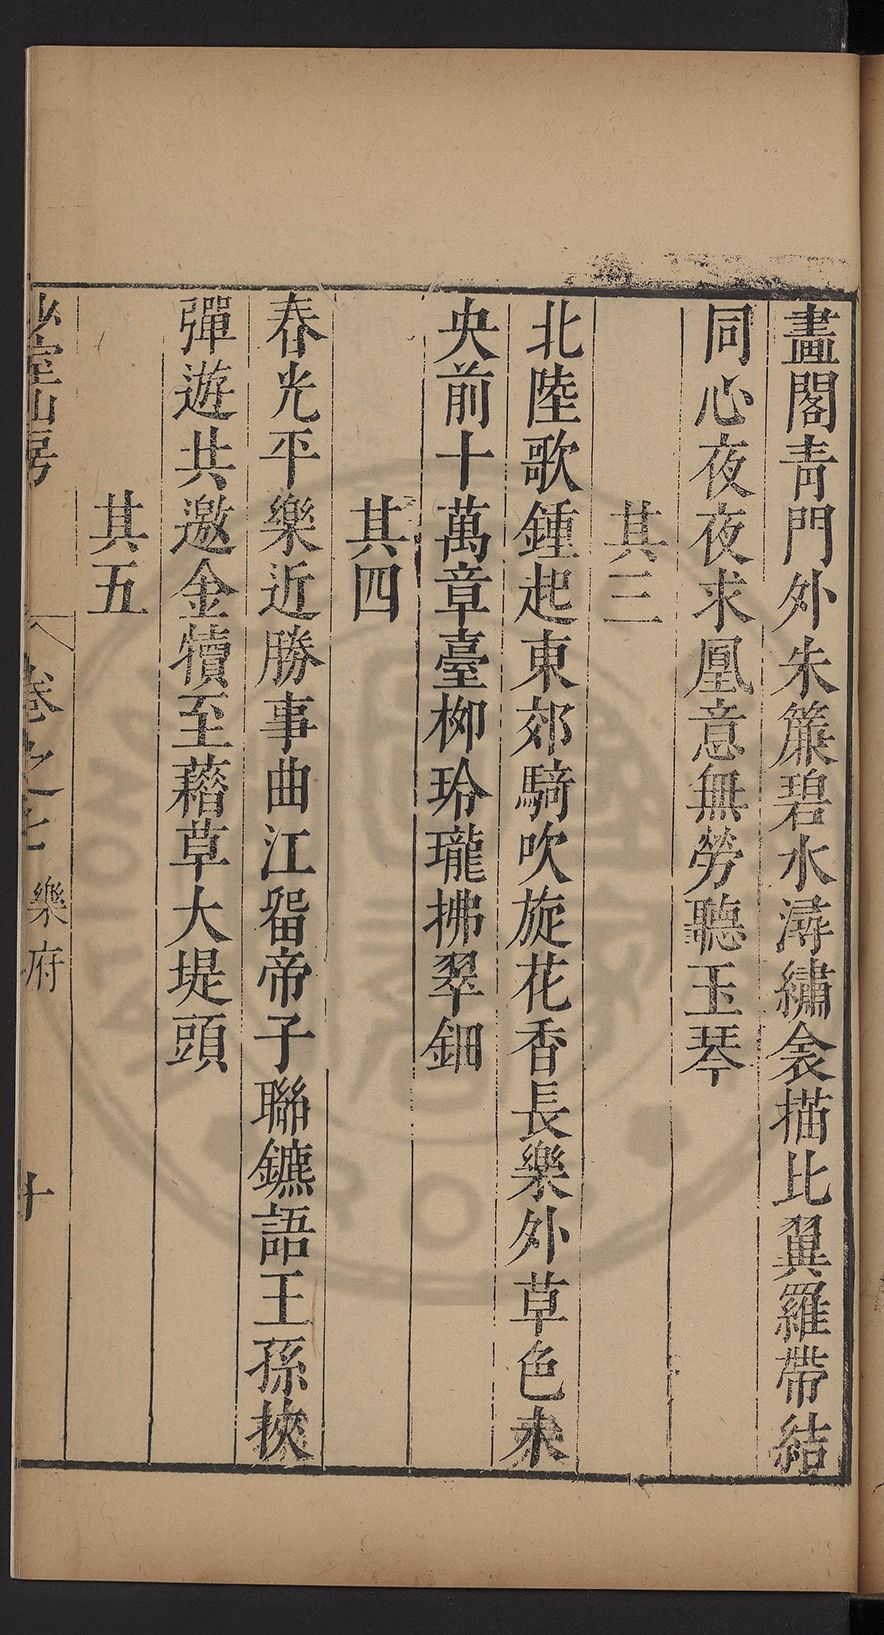 畫閣青門外朱簾碧水潯繡衾描比翼羅帶結
同心夜夜求凰意無勞聽玉琴
其三
北陸歌鍾起東郊騎吹旋花香長樂外草色未
央前十萬章臺柳玲瓏拂翠鈿
其四
春光平樂近勝事曲江畱帝子聯鑣語王孫挾
彈遊共邀金犢至藉草大堤頭
其五
少室山房
卷之七
樂府
十